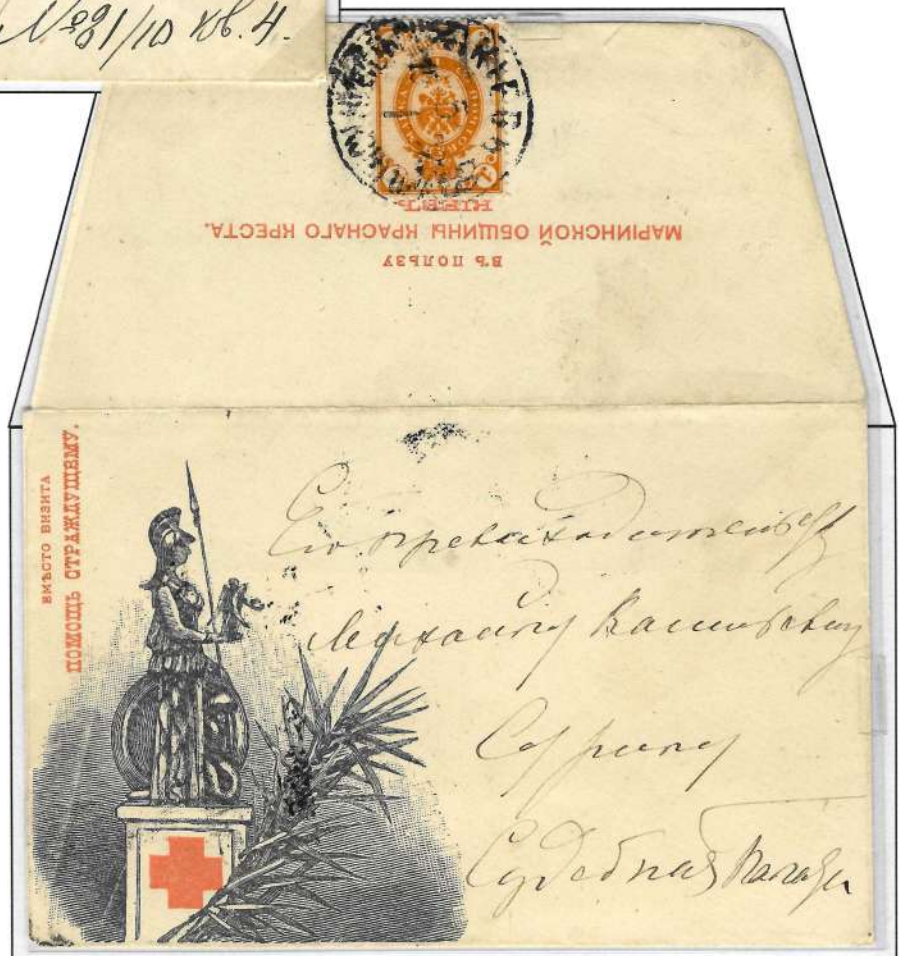 №81/10 кв. 4.
КІЕВЪ
ВЪ ПОЛЬЗУ
МАРІИНСКОЙ ОБЩИНЫ КРАСНАГО КРЕСТА.
КІЕВЪ.
ВМѢСТО ВИЗИТА
ПОМОЩЬ СТРАЖДУЩЕМУ.
Его превосходительству
Михаилу Васильевичу
Судебная Палата